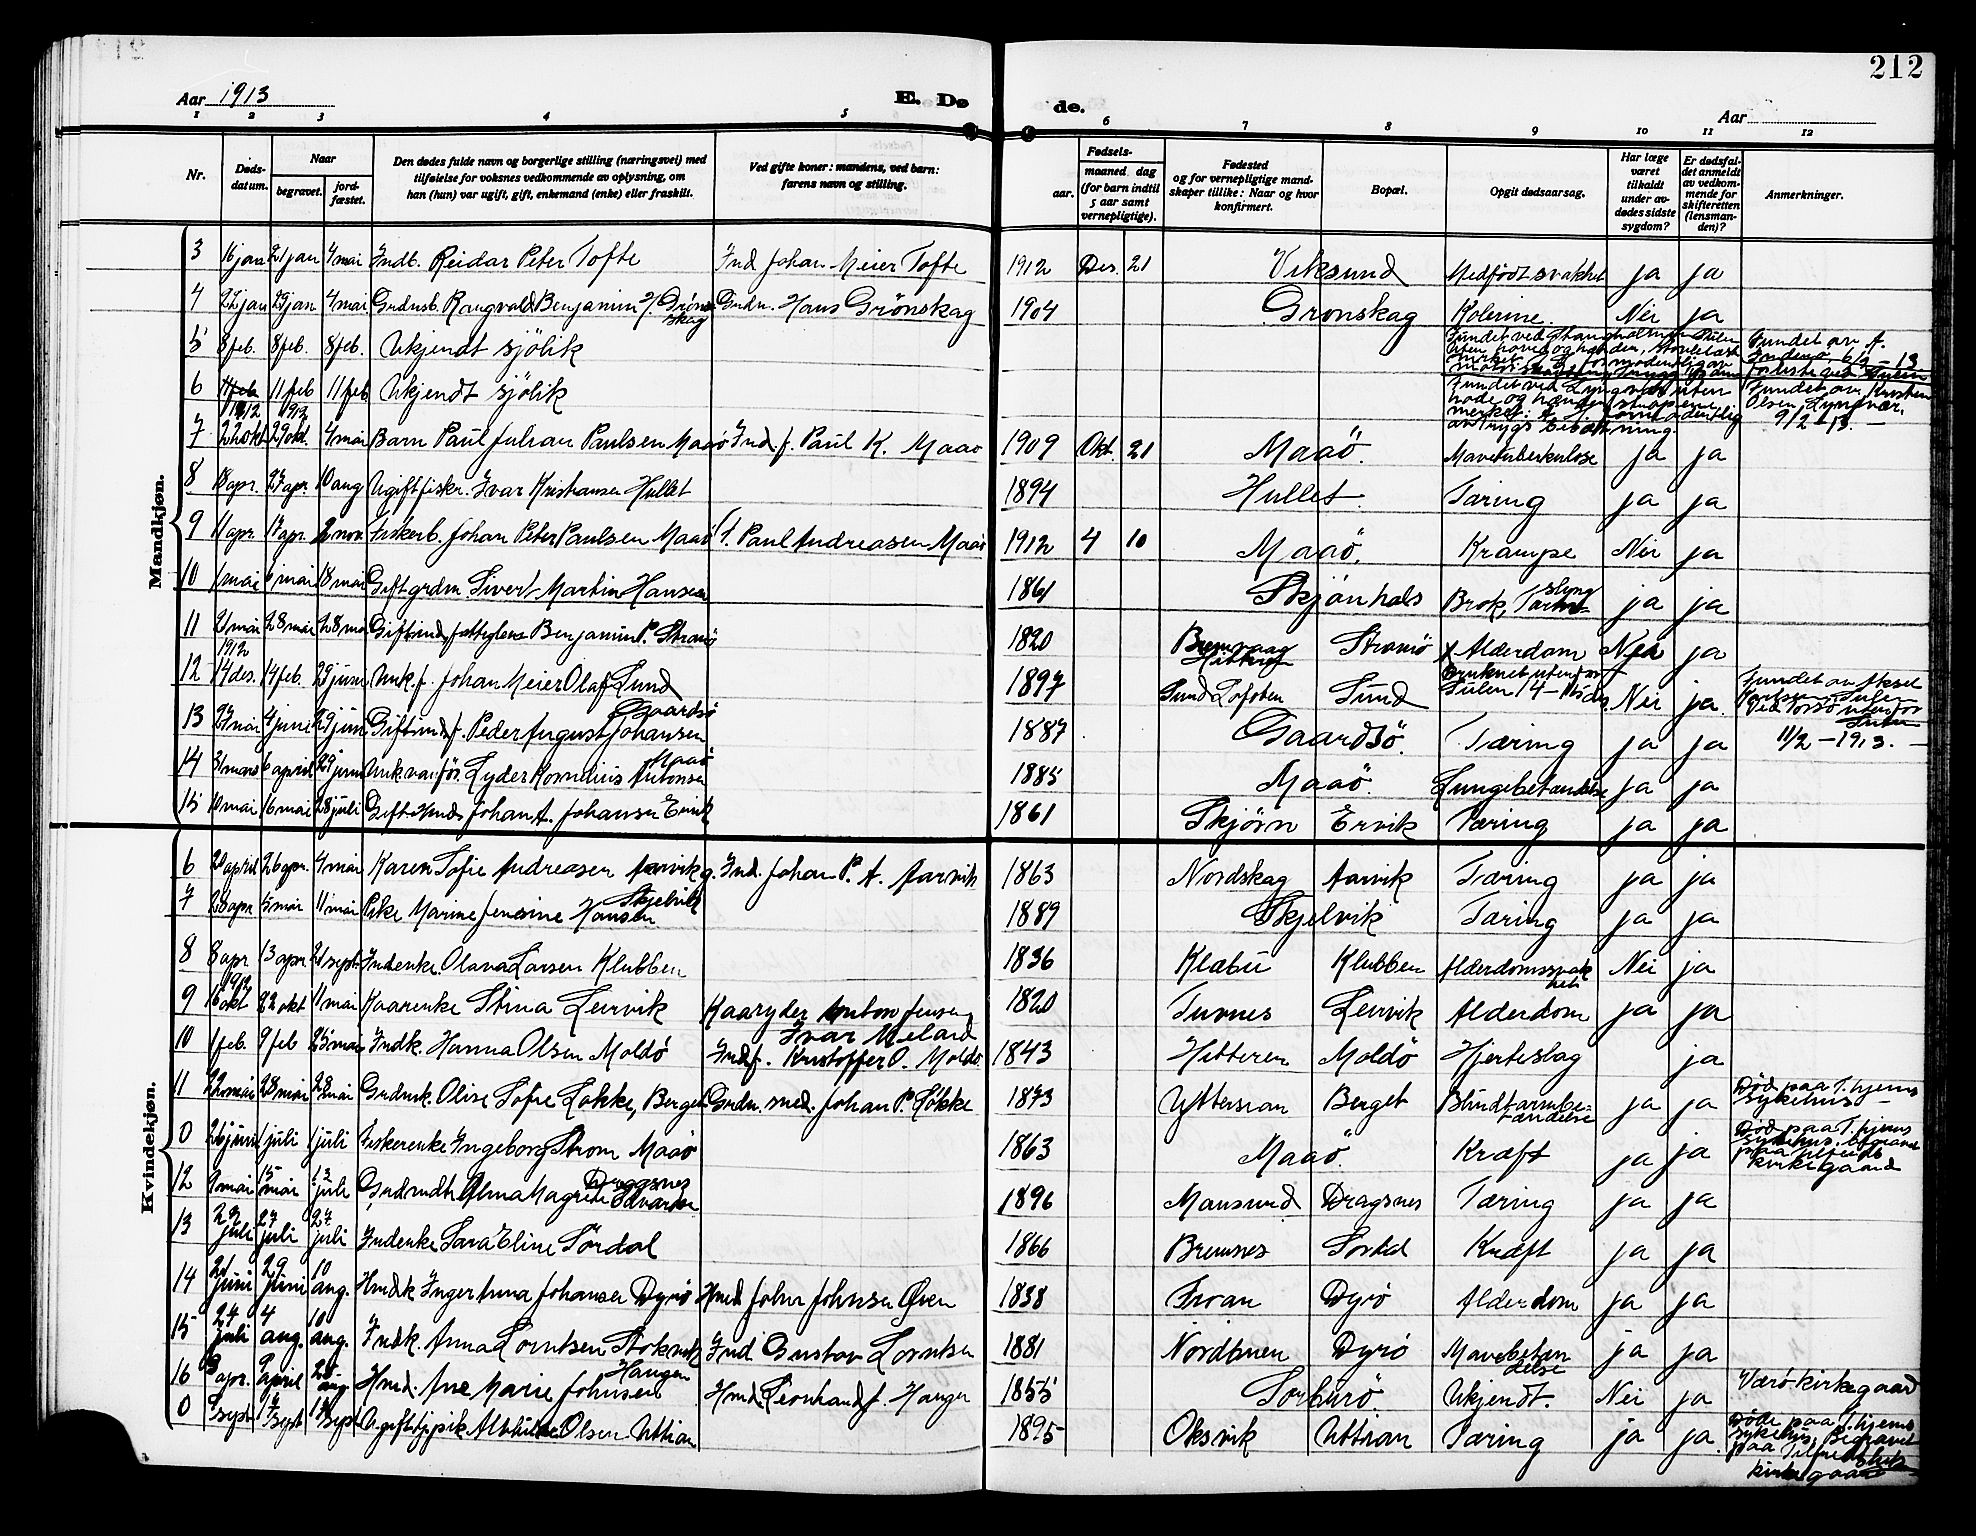 212
Aar 1913
E. Døde.
Aar
1 2 3 4 5 6 7 8 9 10 11 12
Nr.
Døds-datum.
Naar
begravet.
jord-fæstet.
Den dødes fulde navn og borgerlige stilling (næringsvei) med tilføielse for voksnes vedkommende av oplysning, om han (hun) var ugift, gift, enkemand (enke) eller fraskilt.
Ved gifte koner: mandens, ved barn: farens navn og stilling.
Fødsels-
aar. maaned dag
(for barn indtil 5 aar samt vernepligtige).
Fødested og for vernepligtige mandskaper tillike: Naar og hvor konfirmert.
Bopæl.
Opgit dødsaarsag.
Har læge været tilkaldt under avdødes sidste sygdom?
Er dødsfaldet anmeldt av vedkommende for skifteretten (lensmanden)?
Anmerkninger.
Mandkjøn.
3 16 jan 21 jan 4 mai Indb. Reidar Peter Tofte Ind Johan Meier Tofte 1912 Des. 21 Veksund Medfödt svakhet ja ja
4 22 jan 29 jan. 4 mai Grdmsb. Rangvald Benjamin H. Grönskag Grdm. Hans Grönskag 1904 Grönskag Kolerine. Nei ja
5 8 feb. 8 feb. 8 feb. Ukjendt sjölik Fundet ved Fundet av A.
6 11 feb 11 feb 11 feb Ukjendt sjölik Fundet ved uten hode og hænder Fundet av Kristen Olsen 9/2-13.
7 1912 22 okt 1912 29 okt. 4 mai Barn Paul Julian Paulsen Maaö Ind. f. Paul K. Maaö 1909 Okt. 21 Maaö. Mavetuberkulose ja ja
8 18 apr. 27 apr. 10 aug Ugift fisker. Ivar Kristiansen Hullet 1894 Hullet. Tæring ja ja
9 11 apr. 17 apr. 2 nov Fiskerb. Johan Peter Paulsen Maaö f. Paul Andreasen Maaö 1912 4 10 Maaö. Krampe Nei ja
10 1 mai 6 mai 18 mai Gift grdm Sivert Martin Hansen 1861 Skjönhals Brok, Tarmslyng ja ja
11 21 mai 28 mai 28 mai Gift ind. fattiglem Benjamin P. Strömö 1820 Bremvaag Hitteren Strömö Alderdom Nei ja
12 1912 14 des. 14 feb. 29 juni Unk. f. Johan Meier Olaf Lund 1897 Sund Lofoten Sund Druknet utenfor Sulen 14-15 des. Nei ja. Fundet av Aksel Karlsen, Sulen ved Torsö utenfor Sulen 11/2-1913.
13 27 mai 4 juni 29 juni Gift ind. f. Peder August Johansen Gaardsö 1887 Gaardsö. Tæring ja ja
14 31 mars 6 april 29 juni Unk. Lyder Kornelius Antonsen Maaö 1885 Maaö. Lungebetændelse ja ja
15 10 mai 16 mai 28 juli Gift Hmd. Johan A. Johansen Ervik 1861 Skjörn Ervik Tæring ja ja
Kvindekjøn.
6 20 april 26 apr. 4 mai Karen Sofie Andreasen Aarvik g. Ind. Johan P. A. Aarvik 1863 Nordskag Aarvik Tæring ja ja
7 28 apr 5 mai 11 mai Pike Marine Jensine Hansen Skjelvik 1889 Skjelvik Tæring ja ja
8 8 apr 13 apr 21 sept. Indenke Olava Larsen Klubben 1836 Klæbu Klubben Alderdomssvakhet Nei ja
9 1912 16 okt 22 okt 11 mai Kaarenke Stina Leirvik Kaaryder Anton Jensen Ivar Meland 1820 Turnes Leirvik Alderdom ja ja
10 1 feb. 9 feb 25 mai Indk. Hanna Olsen Moldö Ind f. Kristoffer O. Moldö. 1843 Hitteren Moldö Hjerteslag ja
11 22 mai 28 mai 28 mai Grdmk. Olise Sofie Løkke, Berget Grdm. sned. Johan P. Løkke 1873 Yttersian Berget Blindtarmbetændelse ja ja Död paa T.hjems sykehus
0 26 juni 1 juli 1 juli Fiskerenke Ingeborg Ström Maaö 1863 Maaö. Kræft ja ja Död paa T.hjems sykehus, begravet paa Tilfreds kirkegaard
12 9 mai 15 mai 13 juli Grdmdt. Alma Magrete Edvardsen Draggsnes 1896 Mausund Dragsnes Tæring ja ja
13 22 juli 27 juli 27 juli Indenke Sara Eline Sördal 1866 Bremnes Sördal Kræft ja ja
14 21 juni 29 juni 10 aug. Hmdk Inger Anna Johansen Dyrö Hmd John Johnsen Öien 1838 Froan Dyrö Alderdom ja ja
15 27 juli 4 aug. 10 aug. Indk. Anna Lorntsen Ind Gustav Lorntsen 1881 Nordbuen Dyrö Mavebetændelse ja ja
16 3 apr. 9 april 20 aug. Hmd. Ane Marie Johnsen Haugen Hmd Leonhard J. Haugen 1855 Sörburö. Ukjendt. Nei ja Værö kirkegaard
0 9 sept 17 sept 17 sept Ugift pike Alvhilde Olsen Uttian 1895 Oksvik Uttian Tæring ja ja. Döde paa T.hjems sykehus. Begravet paa Tilfredshets kirkegaard